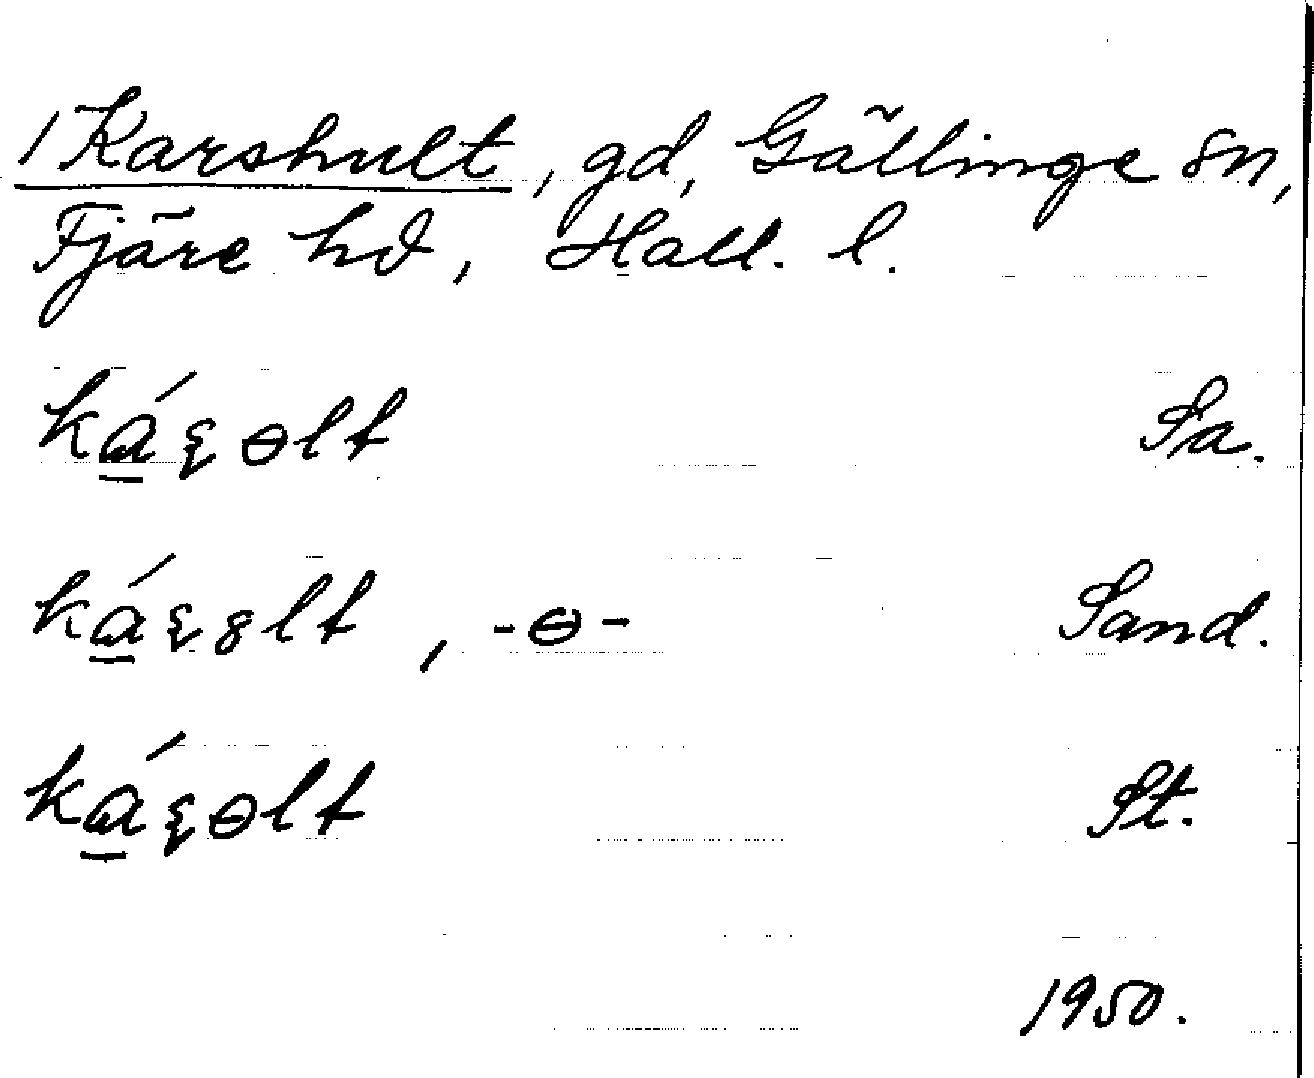 /Karshult, gd, Gällinge sn,
Fjäre hd, Hall. l.
ká̱ꝣɵlt Sa.
ká̱ꝣ8lt, -ɵ- Sand.
ká̱ꝣɵlt St.
1950.